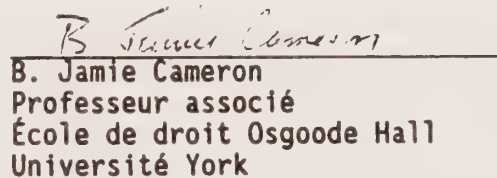 B Jamie Cameron
B. Jamie Cameron
Professeur associé
École de droit Osgoode Hall
Université York